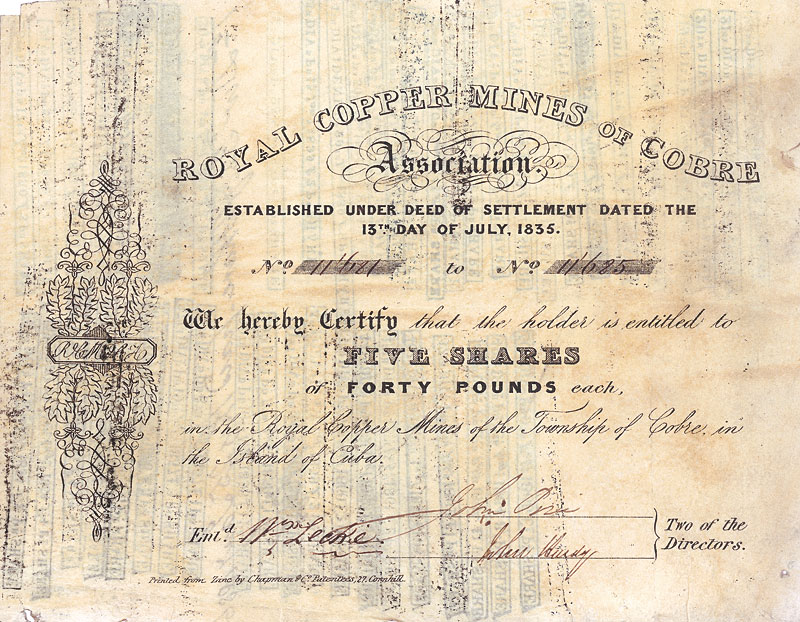 ROYAL COPPER MINES OF COBRE
Association.
ESTABLISHED UNDER DEED OF SETTLEMENT DATED THE
13TH DAY OF JULY, 1835.
No 11'681 to No 11'685
We hereby Certify that the holder is entitled to
FIVE SHARES
of FORTY POUNDS each,
in the Royal Copper Mines of the Township of Cobre, in
the Island of Cuba.
Ent.d Wm Leckie
John
John Hardy
Two of the
Directors.
Printed from Zinc by Chapman & Co. Patentees, 27, Cornhill.